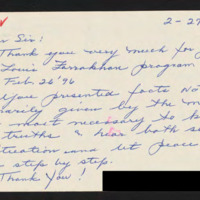 2-29
r Sir!
Thank you very much for y
Louis Farrakhan program
Feb. 26 '96
You presented facts not
arity given by the m
most necessary to b
truths & hear both se
tuation and let peace
step by step.
Thank You!